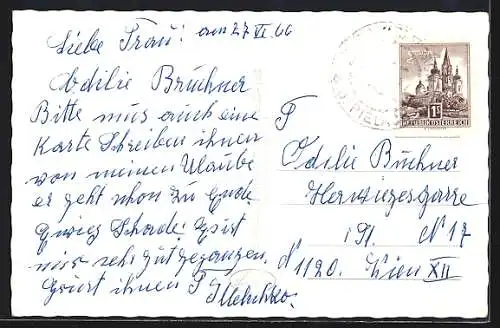 Liebe Frau: am 27 VI. 66
Odilie Bruckner
Bitte mus auch eine
Karte Schreiben ihnen
von meinen Uulaube
er geht schon zu Ende
Schade:
mir sehr gut gegangen
Grüst ihnen
1S
REPUBLIK ÖSTERREICH
Odilie Buchner
St. N 17
N 1120. Wien XII